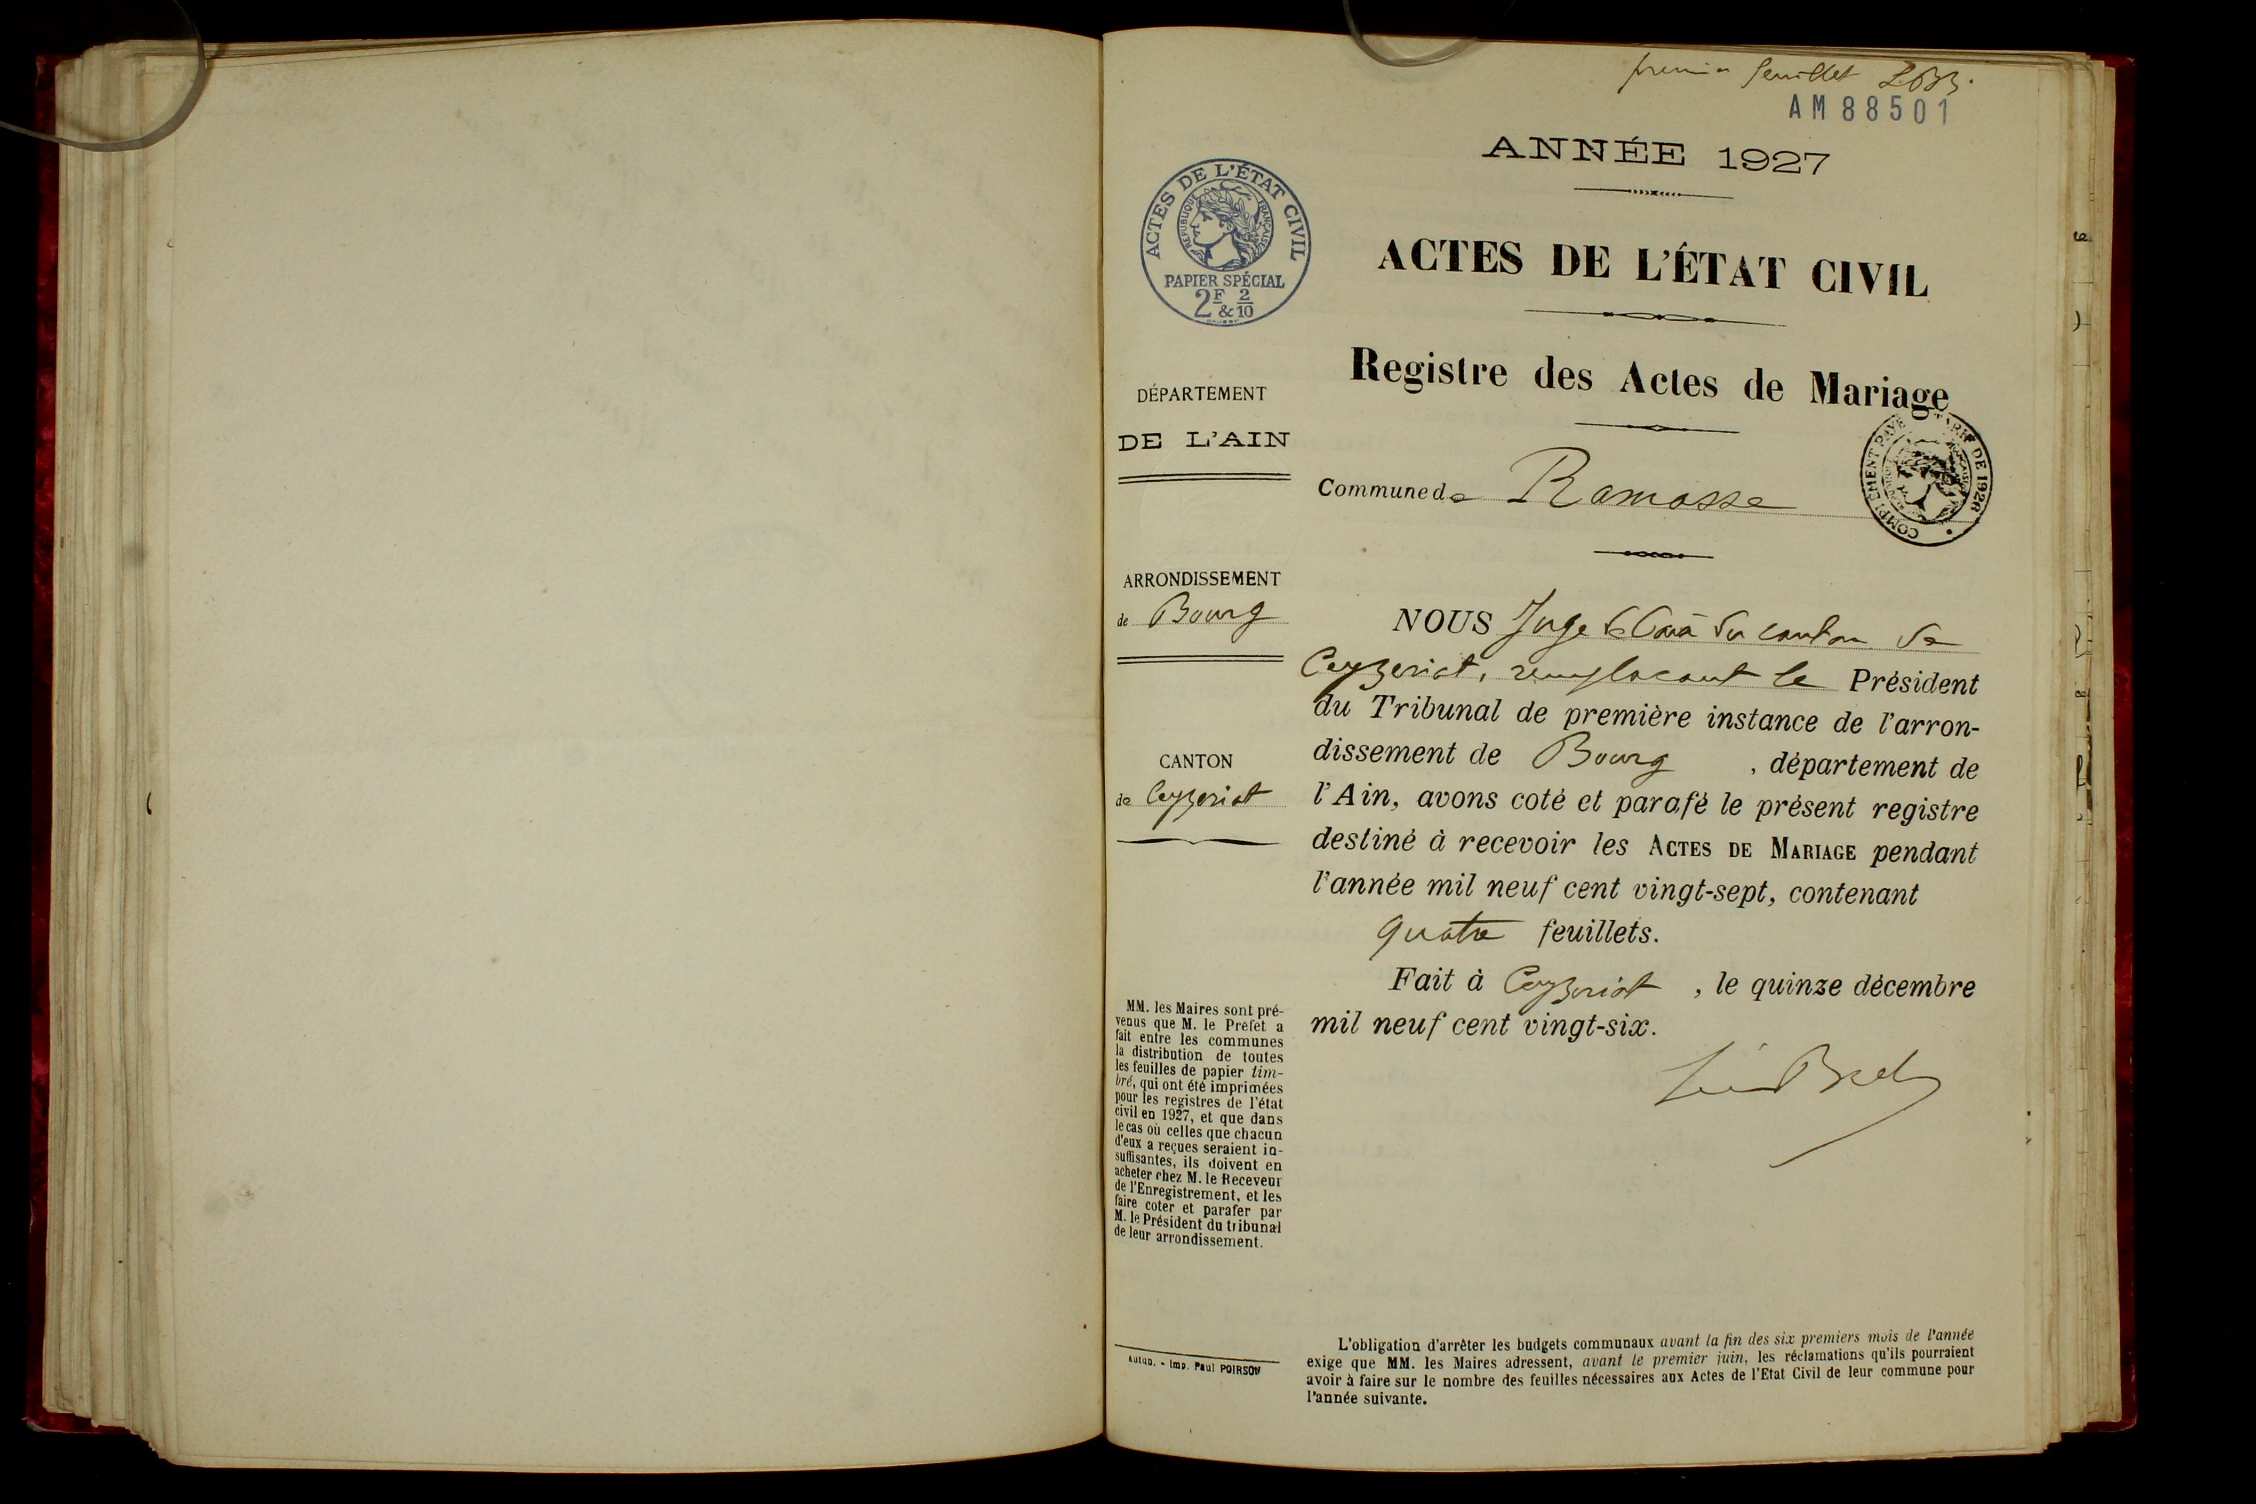 premier feuillet
AM88501
ANNÉE 1927
ACTES DE L'ÉTAT CIVIL
RÉPUBLIQUE FRANÇAISE
PAPIER SPÉCIAL
2F & 2/10
ACTES DE L'ÉTAT CIVIL
Registre des Actes de Mariage
COMPLÉMENT PAYÉ TARIF DE 1926
DÉPARTEMENT
DE L'AIN
Commune de Ramasse
ARRONDISSEMENT
de Bourg
CANTON
de Ceyzeriat
MM. les Maires sont pré-
venus que M. le Préfet a
fait entre les communes
la distribution de toutes
les feuilles de papier tim-
bré, qui ont été imprimées
pour les registres de l'état
civil en 1927, et que dans
le cas où celles que chacun
d'eux a reçues seraient in-
suffisantes, ils doivent en
acheter chez M. le Receveur
de l'Enregistrement, et les
faire coter et parafer par
M. le Président du tribunal
de leur arrondissement.
Autun. - Imp. Paul POIRSON
NOUS Juge de Paix du canton de
Ceyzeriat, remplacant le Président
du Tribunal de première instance de l'arron-
dissement de Bourg , département de
l'Ain, avons coté et parafé le présent registre
destiné à recevoir les ACTES DE MARIAGE pendant
l'année mil neuf cent vingt-sept, contenant
quatre feuillets.
Fait à Ceyzeriat , le quinze décembre
mil neuf cent vingt-six.
L'obligation d'arrêter les budgets communaux avant la fin des six premiers mois de l'année
exige que MM. les Maires adressent, avant le premier juin, les réclamations qu'ils pourraient
avoir à faire sur le nombre des feuilles nécessaires aux Actes de l'Etat Civil de leur commune pour
l'année suivante.